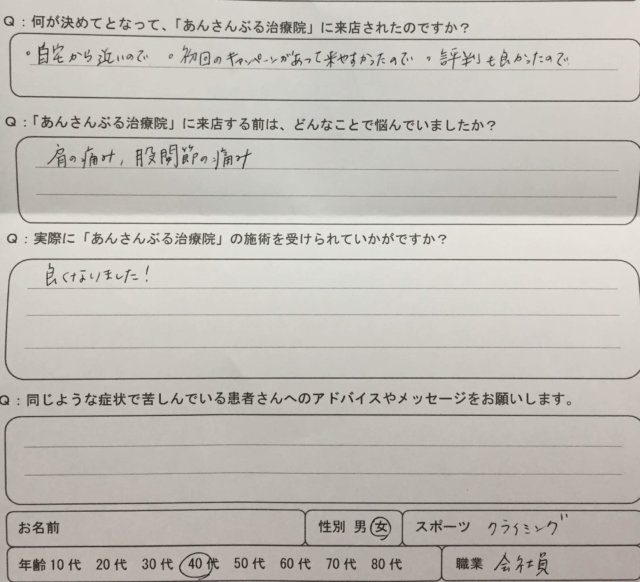 Q：何が決めてとなって、「あんさんぶる治療院」に来店されたのですか？
・自宅から近いので ・初回のキャンペーンがあって来やすかったので ・評判も良かったので
Q：「あんさんぶる治療院」に来店する前は、どんなことで悩んでいましたか？
肩の痛み，股関節の痛み
Q：実際に「あんさんぶる治療院」の施術を受けられていかがですか？
良くなりました！
Q：同じような症状で苦しんでいる患者さんへのアドバイスやメッセージをお願いします。
お名前 性別 男 女 スポーツ クライミング
年齢10代 20代 30代 40代 50代 60代 70代 80代 職業 会社員